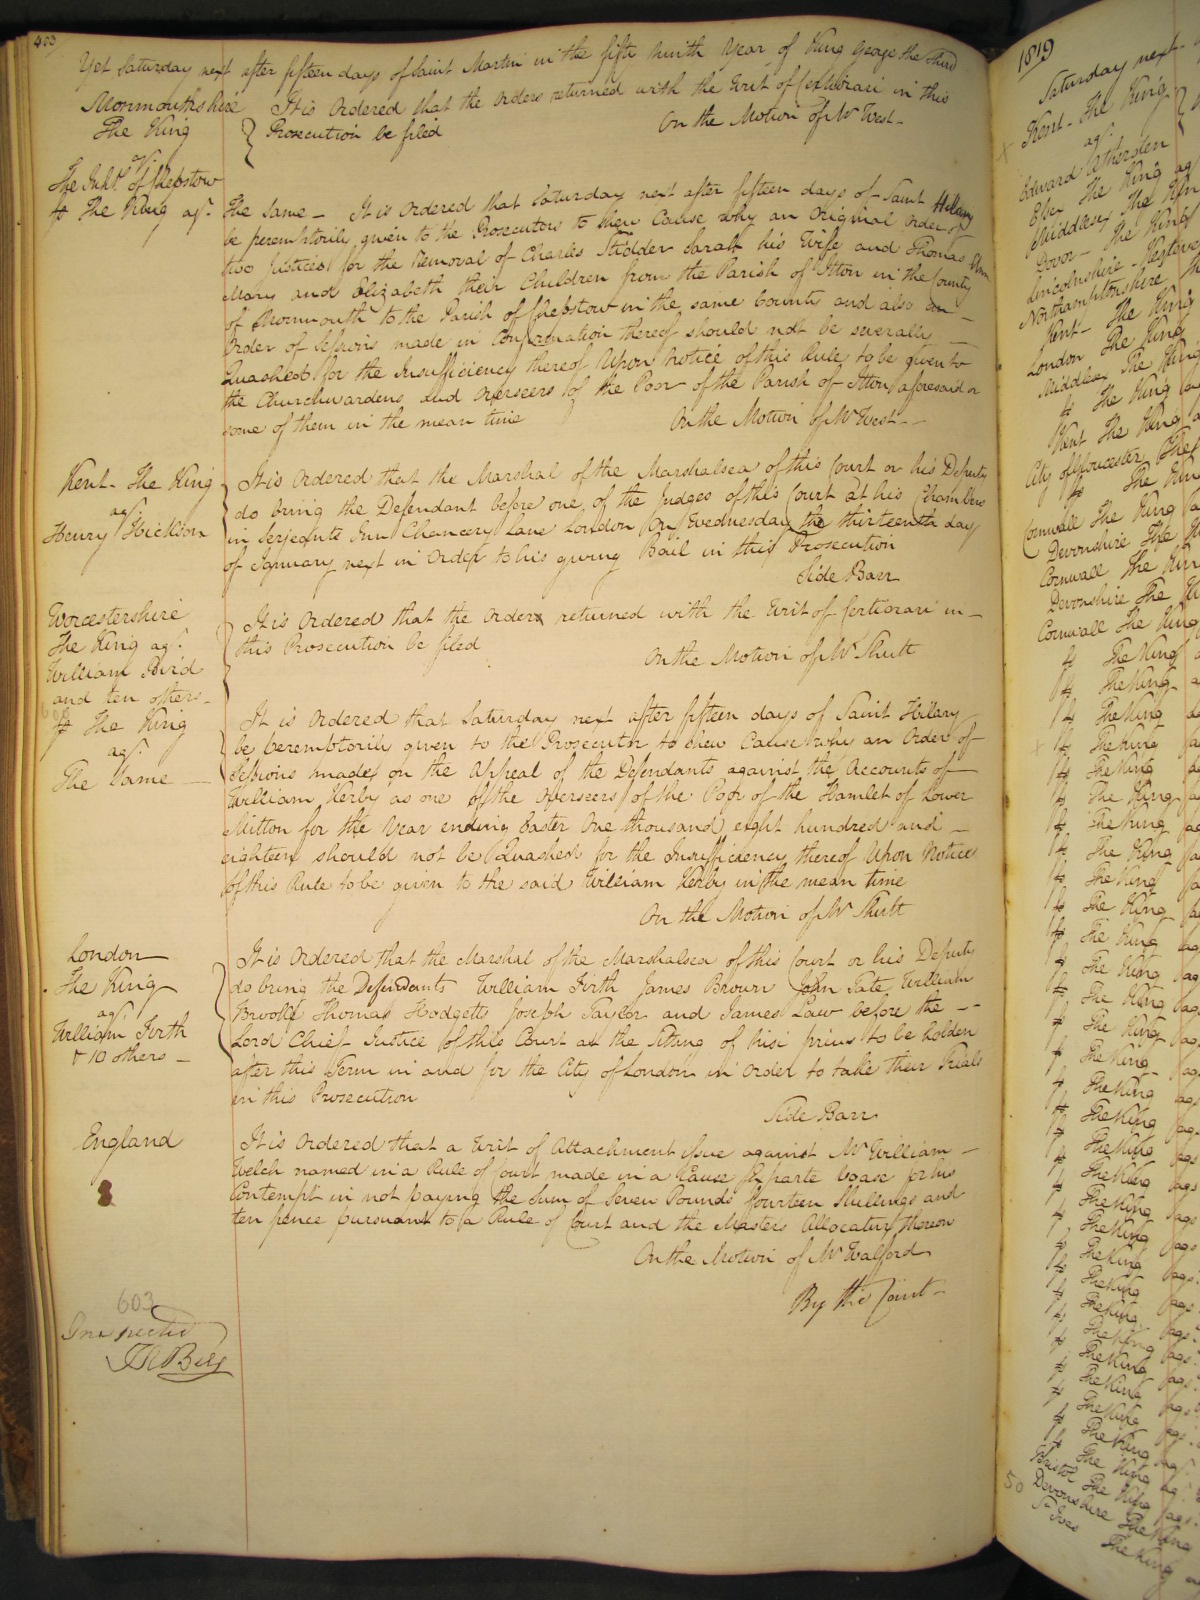 403
Yet Saturday next after fifteen days of Saint Martin in the fifty ninth Year of King George the Third
Monmouthshire
The King
v.
The Inhts. of Chepstow
It is Ordered that the Orders returned with the Writ of Certiorari in this
Prosecution be filed
On the Motion of Mr West
The King agt.
The Same - It is Ordered that Saturday next after fifteen days of Saint Hilary
be peremptorily given to the Prosecutors to shew Cause why an Original Order of
two Justices for the Removal of Charles Sarah his Wife and Thomas
Mary and Elizabeth their Children from the Parish of Itton in the County
of Monmouth to the Parish of Chepstow in the same County and also an
Order of Sessions made in Confirmation thereof should not be severally
Quashed for the Insufficiency thereof Upon Notice of this Rule to be given to
the Churchwardens and Overseers of the Poor of the Parish of Itton aforesaid or
some of them in the mean time
On the Motion of Mr West
Kent - The King
agt.
Henry Hickson
It is Ordered that the Marshal of the Marshalsea of this Court or his Deputy
do bring the Defendant before one of the Judges of this Court at his Chambers
in Serjeants Inn Chancery Lane London On Wednesday the thirteenth day
of January next in Order to his giving Bail in this Prosecution
Side Barr
Worcestershire
The King agt.
William Bird
and ten others
It is Ordered that the Orders returned with the Writ of Certiorari in
this Prosecution be filed
On the Motion of Mr Shutt
The King
agt.
The Same
It is Ordered that Saturday next after fifteen days of Saint Hilary
be peremptorily given to the Prosecutor to shew Cause why an Order of
Sessions made on the Appeal of the Defendants against the Accounts of
William Kerby as one of the Overseers of the Poor of the Hamlet of Lower
Mitton for the Year ending Easter One thousand eight hundred and
eighteen should not be Quashed for the Insufficiency thereof Upon Notice
of this Rule to be given to the said William Kerby in the mean time
On the Motion of Mr Shutt
London
The King
agt.
William Firth
& 10 others
It is Ordered that the Marshal of the Marshalsea of this Court or his Deputy
do bring the Defendants William Firth James Brown John Tate William
Brooke Thomas Hodgetts Joseph Taylor and James Law before the
Lord Chief Justice of this Court at the Sitting of nisi prius to be holden
after this Term in and for the City of London in Order to take their Trials
in this Prosecution
Side Barr
England
It is Ordered that a Writ of Attachment Issue against Mr William
Welch named in a Rule of Court made in a Cause Exparte for his
Contempt in not paying the Sum of Seven Pounds fourteen Shillings and
ten pence pursuant to a Rule of Court and the Masters Allocatur thereon
On the Motion of Mr Walford
By the Court
603
Inspected
1819
Saturday next
Kent - The King
agt.
Edward
The King agt
Middlesex The King
Dover - The King
Lincolnshire
Northamptonshire
Kent - The King
London The King
Middlesex The King
The King
Kent The King
City of Gloucester The
The King
Cornwall The King
Devonshire The
Cornwall The King
Devonshire The
Cornwall The King
The King
The King
The King
The King
The King
The King
The King
The King
The King
The King
The King
The King
The King
The King
The King
The King
The King
The King
The King
The King
The King
The King
The King
The King
The King
The King
The King
The King
The King
Bristol The King
50
Devonshire The King
St Ives The King